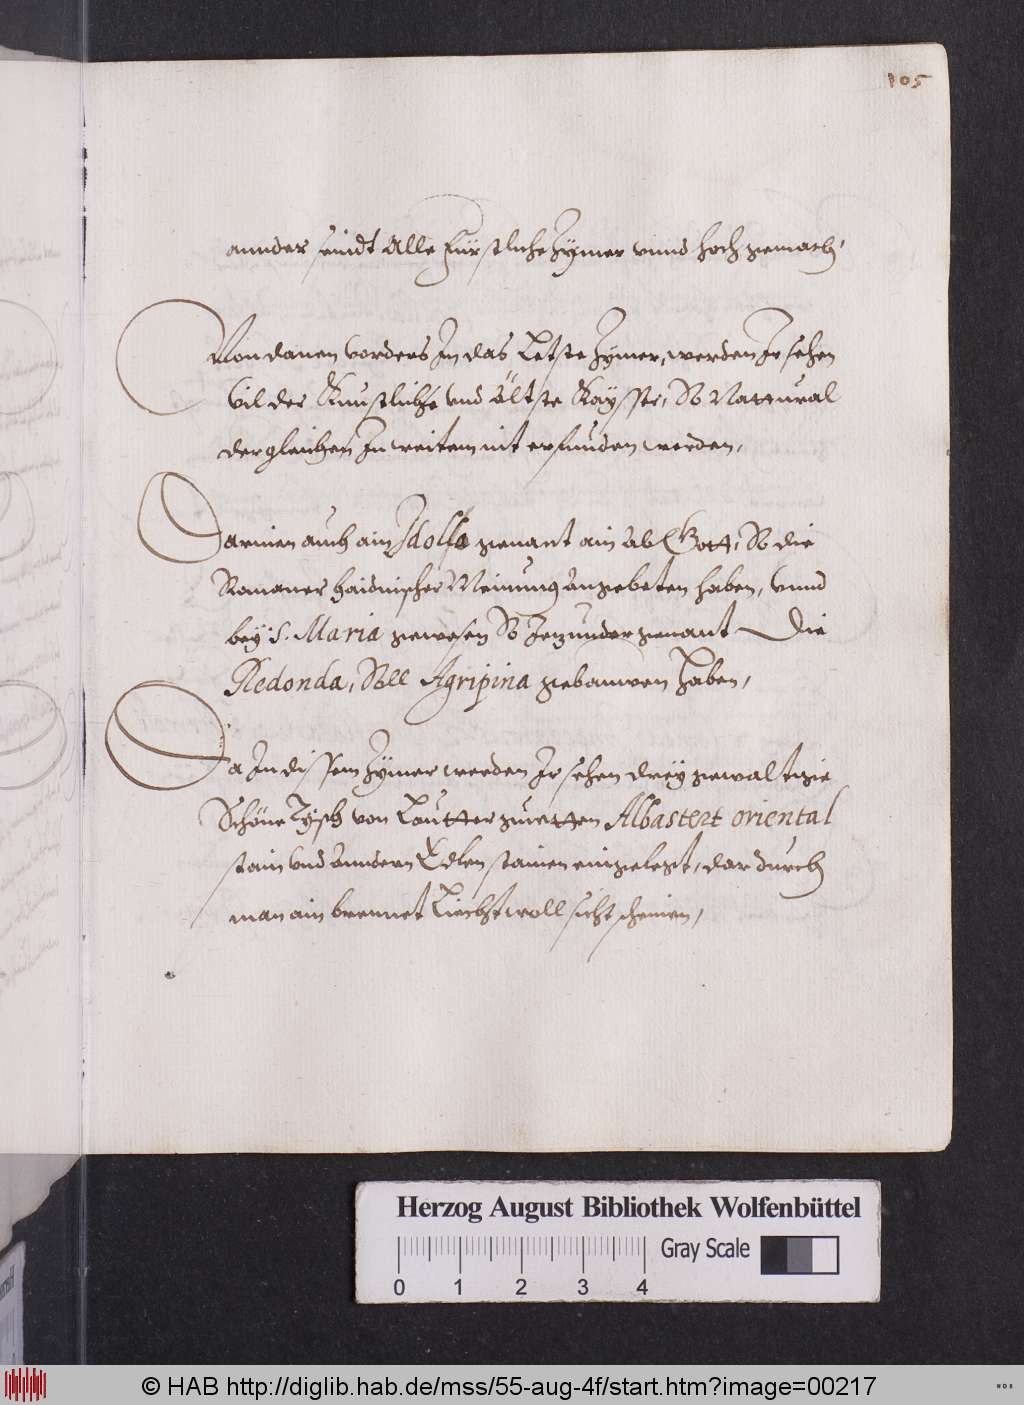 105
annder seindt Alle Fürstliche Zymer vnnd hoch gemach,
Von danen vorders In das Letste Zymer, werden Ir sehen
Vil der Kunstliche vnd ältste Kaysser, So Nattural
dergleichen In weitem nit erfunden werden,
Darinen auch ain Idolla genant ain ab Gott, So die
Romaner haidnischer Meinung angebeten haben, vnnd
bey S. Maria gewesen So Jezunder genant Die
Redonda, Soll Agripina gebauwen haben,
Da In dissem Zymer werden Ir sehen drey gewaltige
Schöne Tisch von Lautter Albastert oriental
stain vnd anndern Edlen stainen eingelegt, dardurch
man ain brennet Liecht woll sicht scheinen,
Herzog August Bibliothek Wolfenbüttel
Gray Scale
0 1 2 3 4
© HAB http://diglib.hab.de/mss/55-aug-4f/start.htm?image=00217